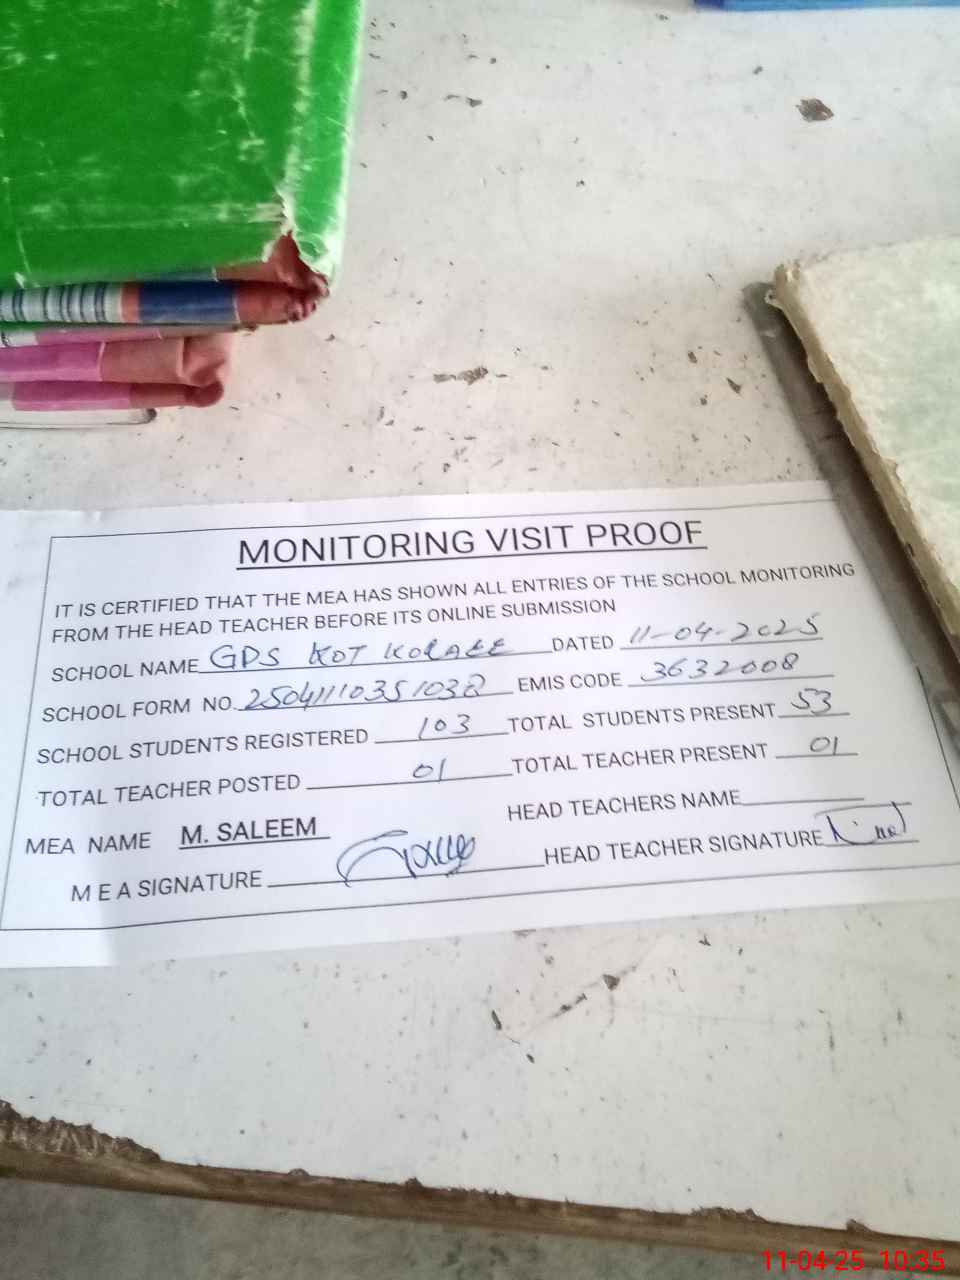 MONITORING VISIT PROOF
IT IS CERTIFIED THAT THE MEA HAS SHOWN ALL ENTRIES OF THE SCHOOL MONITORING
FROM THE HEAD TEACHER BEFORE ITS ONLINE SUBMISSION
SCHOOL NAME GPS KOT DATED 11-04-2025
SCHOOL FORM NO. EMIS CODE 3632008
SCHOOL STUDENTS REGISTERED 103 TOTAL STUDENTS PRESENT 53
TOTAL TEACHER POSTED 01 TOTAL TEACHER PRESENT 01
MEA NAME M. SALEEM HEAD TEACHERS NAME
M E A SIGNATURE HEAD TEACHER SIGNATURE
11-04-25 10:35